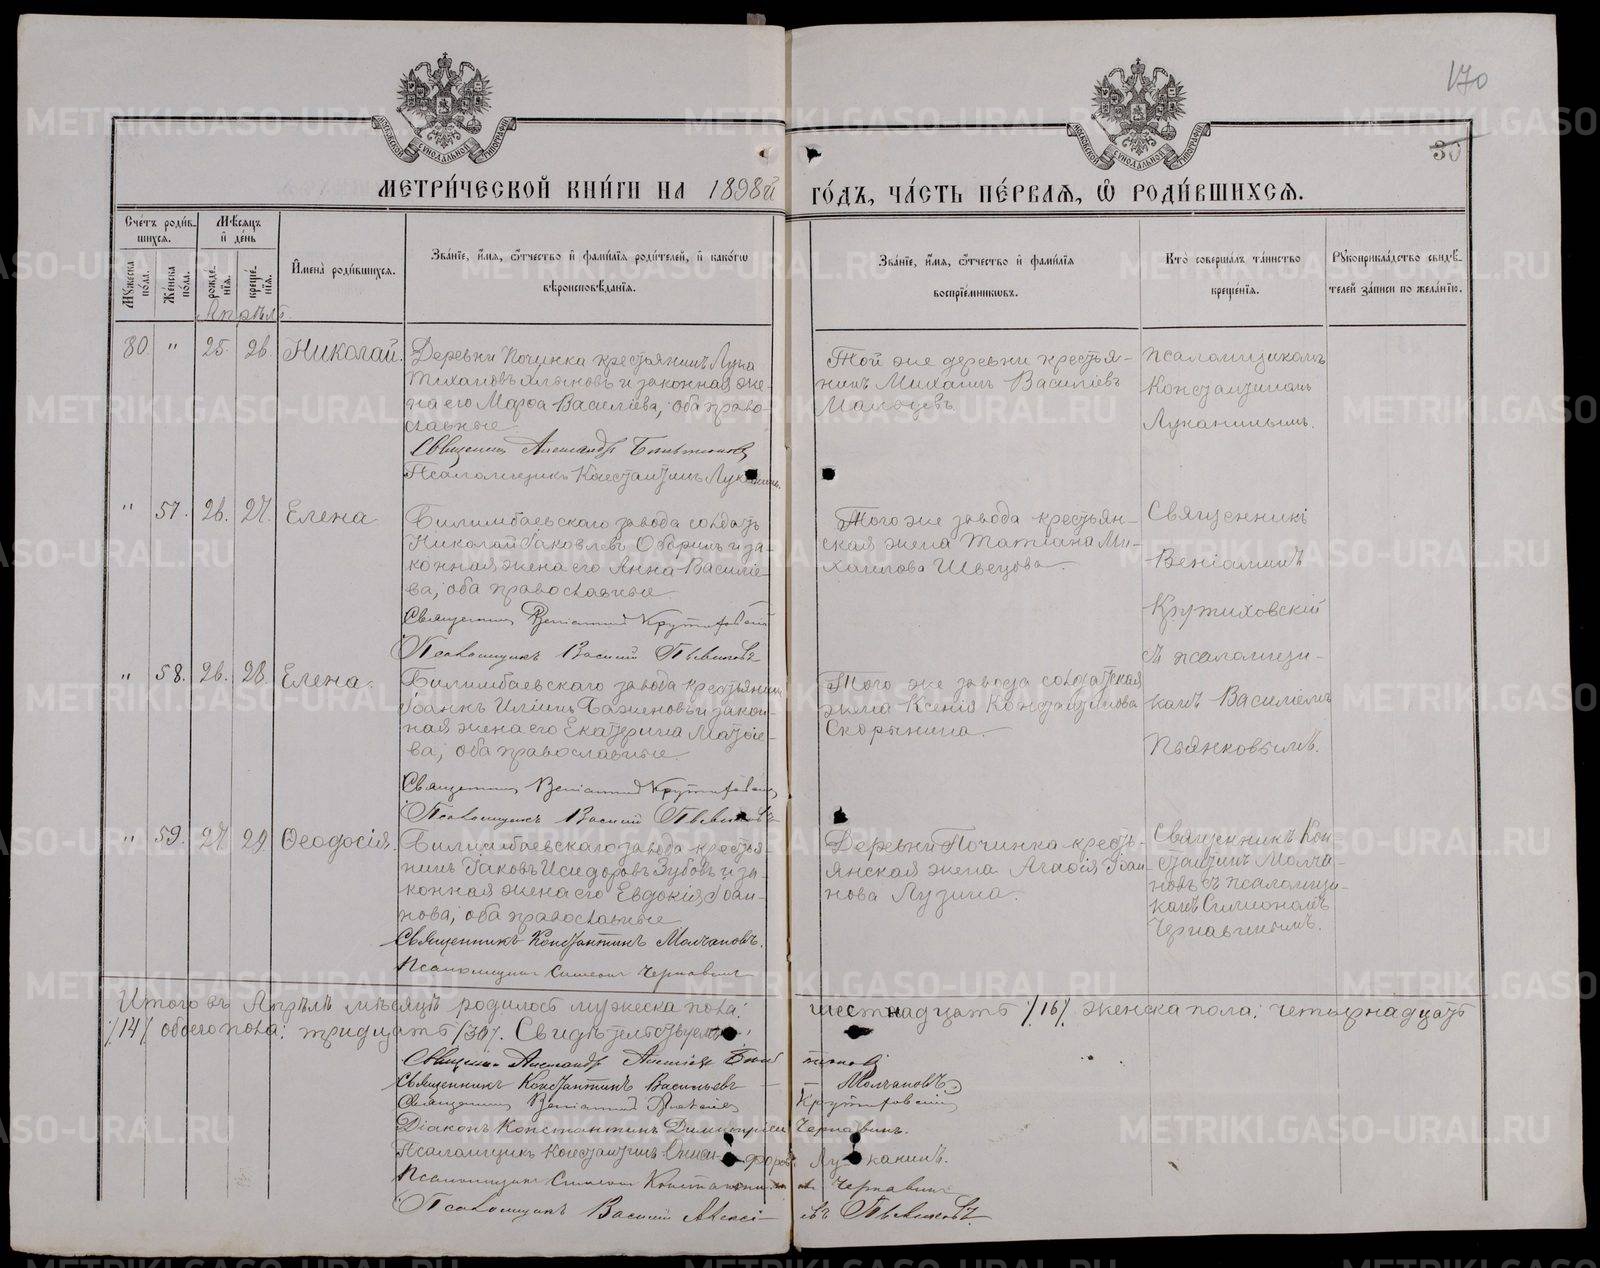 170
30
МОСКОВСКОЙ СѴНОДАЛЬНОЙ ТИПОГРАФІИ
МОСКОВСКОЙ СѴНОДАЛЬНОЙ ТИПОГРАФІИ
МЕТРИ́ЧЕСКОЙ КНИ́ГИ НА 1898й ГО́ДЪ, ЧА́СТЬ ПЕ́РВАЯ, Ѡ РОДИ́ВШИХСЯ.
Сче́тъ роди́в-
шихся.
Мѣсяцъ
и день
Мужеска пола.
Женска пола.
рожде́нїя.
креще́нїя.
Имена̀ роди́вшихся.
Зва́нїе, и́мя, ѻ҆́тчество и фами́лїя роди́телей, и како́гѡ
вѣроисповѣ́данїя.
Зва́нїе, и́мя, ѻ҆́тчество и фами́лїя
воспрїе́мниковъ.
Кто̀ соверша́лъ та́инство
креще́нїя.
Рꙋкоприкла́дство свидѣ́-
телей за́писи по жела́нїю.
Апрѣль
80 " 25. 26. Николай.
Деревни Починка крестьянинъ Лука
и законная же-
на его Марѳа Василіева, оба право-
славные
Священникъ Александръ
Псаломщикъ Константинъ Луканинъ.
Той же деревни крестья-
нинъ Михаилъ Василіевъ
Мальцевъ.
Псаломщикомъ
Константиномъ
Луканинымъ.
" 57. 26. 27. Елена
Билимбаевскаго завода солдатъ
Николай Іаковлевъ Оборинъ и за-
конная жена его Анна Василіе-
ва, оба православные
Священникъ Веніаминъ Крутиховскій
Псаломщикъ Василій Пьянковъ
Того же завода крестьян-
ская жена Татіана Ми-
хаилова Швецова.
Священникъ
Веніаминъ
Крутиховскій
съ псаломщи-
комъ Василіемъ
Пьянковымъ.
" 58. 26. 28. Елена.
Билимбаевскаго завода крестьянинъ
Іоаннъ Иліинъ Баженовъ и закон-
ная жена его Екатерина Матѳіе-
ва, оба православные
Священникъ Веніаминъ Крутиховскій
Псаломщикъ Василій Пьянковъ
Того же завода солдатская
жена Ксенія Константинова
Скорынина.
" 59. 27 29 Ѳеодосія.
Билимбаевскаго завода крестья-
нинъ Іаковъ Исидоровъ Зубовъ и за-
конная жена его Евдокія Іоан-
нова, оба православные
Священникъ Константинъ Молчановъ.
Псаломщикъ Симеонъ Чернавинъ
Деревни Починка кресть-
янская жена Агаѳія Іоан-
нова Лузина.
Священникъ Кон-
стантинъ Молча-
новъ съ псаломщи-
комъ Симеономъ
Чернавинымъ.
Итого въ Апрѣлѣ мѣсяцѣ родилось мужеска пола: шестнадцать /16/ женска пола: четырнадцать
/14/ обоего пола: тридцать /30/. Свидѣтельствуемъ:
Священникъ Александръ Алексіевъ
Священникъ Константинъ Васильевъ Молчановъ
Священникъ Веніаминъ Крутиховскій
Діаконъ Константинъ Димитріевъ Чернавинъ.
Псаломщикъ Константинъ Онисифоровъ Луканинъ.
Псаломщикъ Симеонъ Константиновъ Чернавинъ
Псаломщикъ Василій Алексіевъ Пьянковъ
METRIKI.GASO-URAL.RU